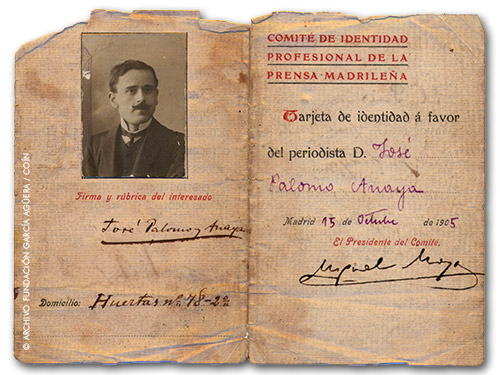 © ARCHIVO FUNDACIÓN GARCÍA AGÜERA / COÍN
Firma y rúbrica del interesado
José Palomo y Anaya
Domicilio: Huertas nº 78-2º
COMITÉ DE IDENTIDAD
PROFESIONAL DE LA
PRENSA-MADRILEÑA
Tarjeta de identidad á favor
del periodista D. José
Palomo Anaya
Madrid 15 de Octubre de 1905
El Presidente del Comité,
Miguel Moya